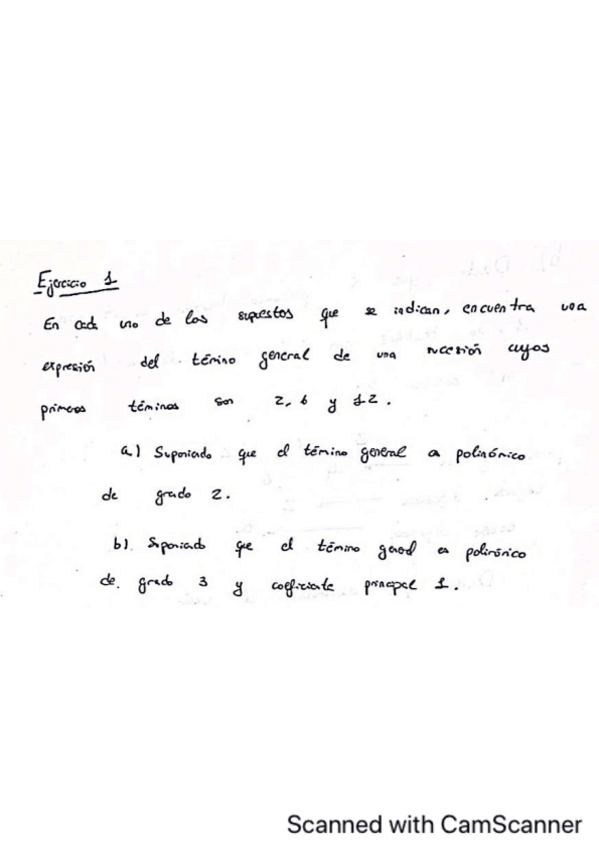 Ejercicio 1
En cada uno de los supuestos que se indican, encuentra una
expresión del término general de una sucesión cuyos
primeros términos son 2, 6 y 12.
a) Suponiendo que el término general es polinómico
de grado 2.
b) Suponiendo que el término general es polinómico
de grado 3 y coeficiente principal 1.
Scanned with CamScanner